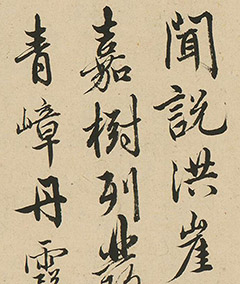 聞說洪崖
嘉樹列
青嶂丹